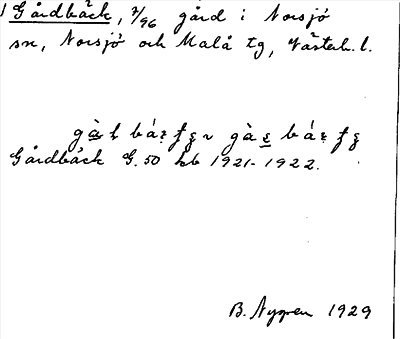 1 Gårdbäck, 7/96 gård i Norsjö
sn, Norsjö och Malå tg, Västerb. l.
Gårdbäck G. 50 kb 1921-1922.
B. Nygren 1929